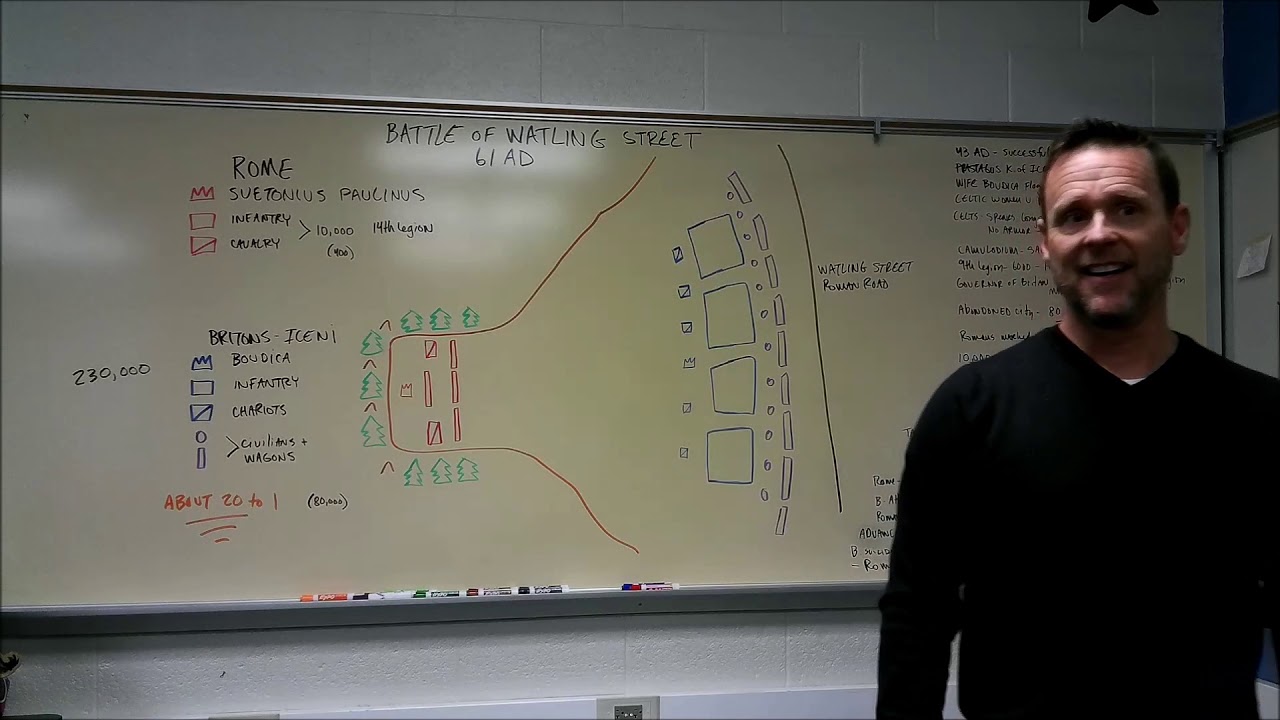 BATTLE OF WATLING STREET
61 AD
ROME
SUETONIUS PAULINUS
INFANTRY
CAVALRY
10,000 14th legion
(400)
BRITONS - ICENI
230,000
BOUDICA
INFANTRY
CHARIOTS
CIVILIANS +
WAGONS
ABOUT 20 to 1 (80,000)
WATLING STREET
ROMAN ROAD
43 AD - SUCCESSFUL
K. of ICE
WIFE BOUDICA
CELTIC WOMEN
CELTS-
NO ARMOR
CAMULODIUM - SA
9th legion - 6000 -
GOVERNOR OF
ABANDONED city - 80
ROMANS
10,000
ROME -
B. A
ROMA
ADVANC
B
- ROM